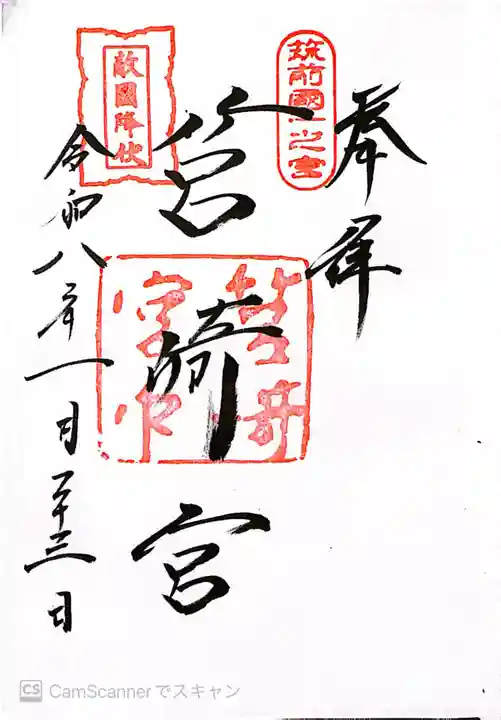 奉拝
筑前國一之宮
筥崎宮
敵國降伏
令和八年一月二十三日
CS CamScannerでスキャン